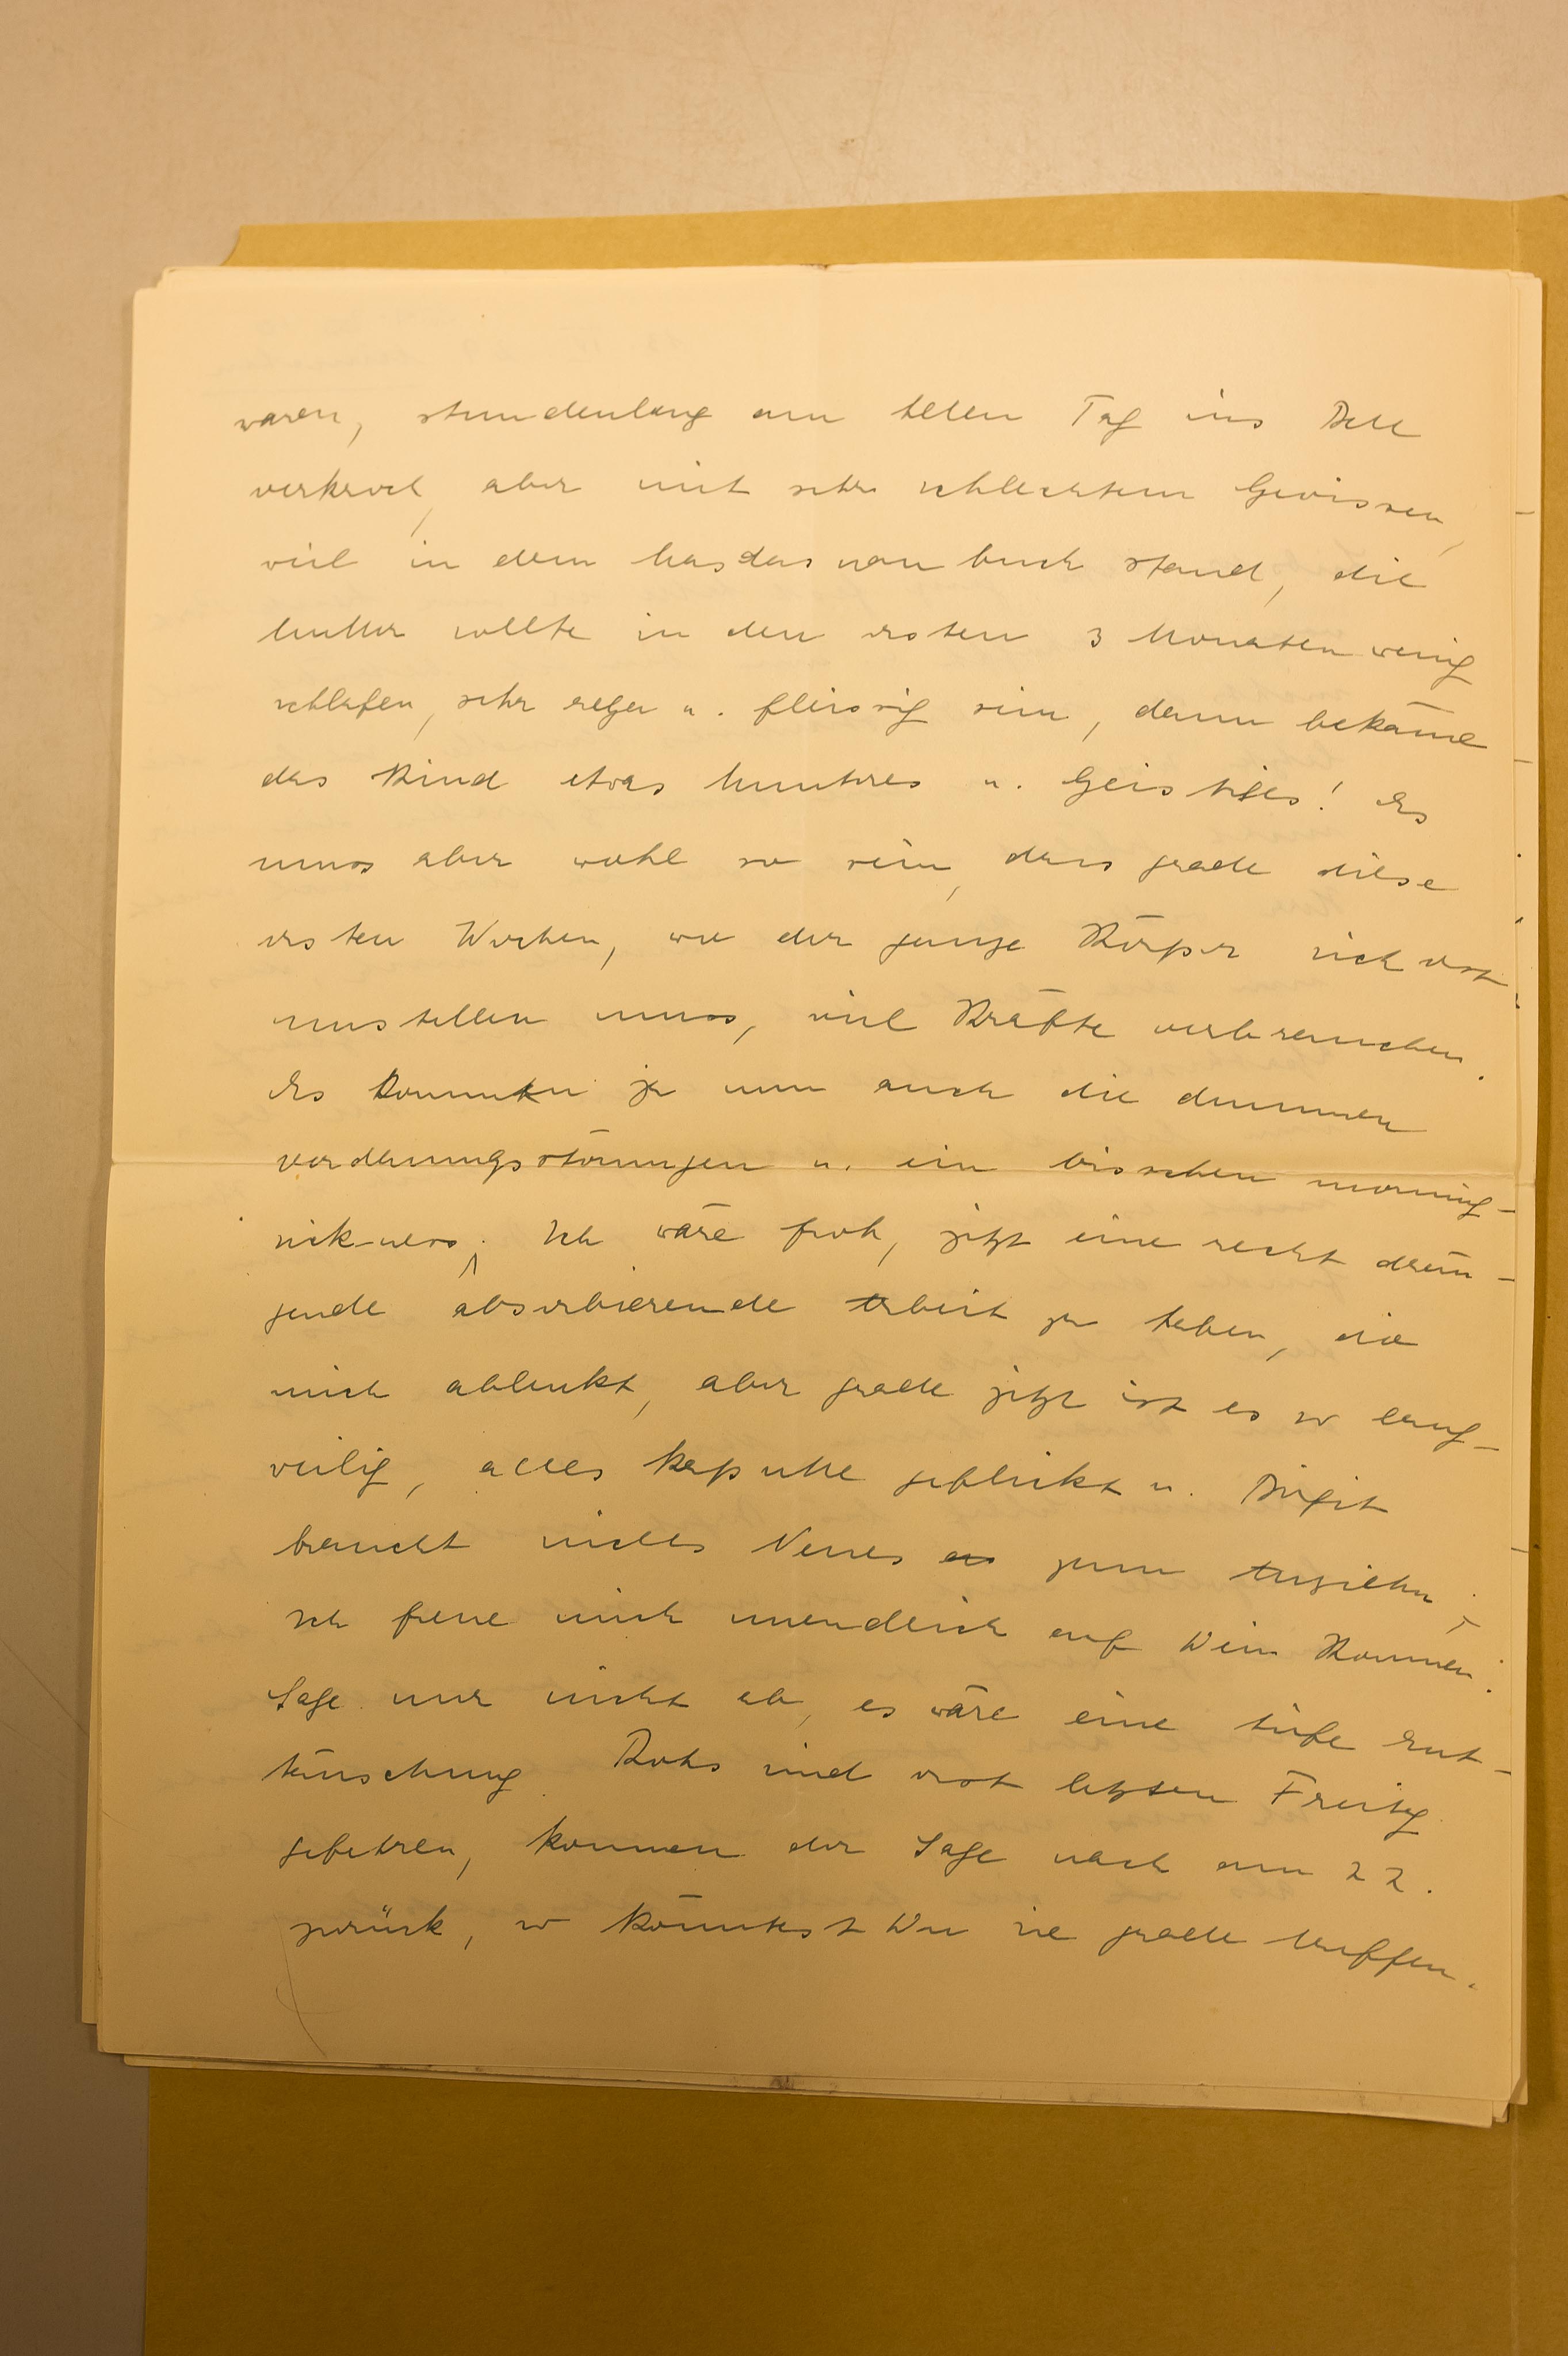 waren, stundenlang am hellen Tag ins Bett
verkroch, aber mit sehr schlechtem Gewissen,
weil in dem Masdasnanbuch stand, die
Mutter sollte in den ersten 3 Monaten wenig
schlafen, sehr rege u. fleissig sein, dann bekäme
das Kind etwas Muntres u. Geistiges! Es
muss aber wohl so sein, dass grade diese
ersten Wochen, wo der ganze Körper sich erst
umstellen muss, viel Kräfte verbrauchen.
Es kommen ja nun auch die dummen
Verdauungsstörungen u. ein bisschen morning-
sickness. Ich wäre froh, jetzt eine recht drän-
gende absorbierende Arbeit zu haben, die
mich ablenkt, aber grade jetzt ist es so lang-
weilig, alles kaputte geflickt u. Birgit
braucht nichts Neues zum Anziehn;
Ich freue mich unendlich auf Dein Kommen.
Sage nur nicht ab, es wäre eine tiefe Ent-
täuschung. Rohs sind erst letzten Freitag
gefahren, kommen der Sage nach am 22.
zurück, so könntest Du sie grade treffen.